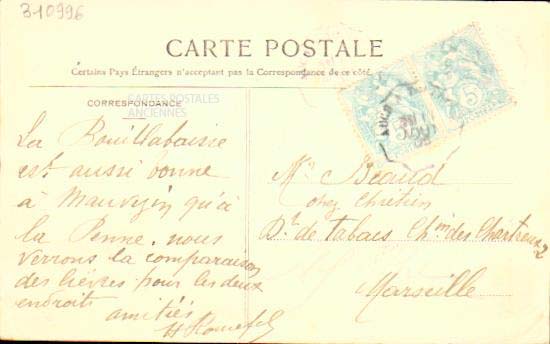 310996
CARTE POSTALE
Certains Pays Étrangers n'acceptant pas la Correspondance de ce côté
CORRESPONDANCE
CARTES POSTALES
ANCIENNES
La Bouillabaisse
est aussi bonne
à Mauvezin qu'à
la Penne. nous
verrons la comparaison
des lièvres pour les deux
endroits
amitiés
5
Mr Béraud
chez Chrétien
Dt de tabacs Chin des Chartreux 2
Marseille